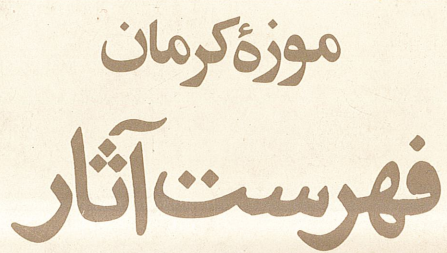 موزهٔ کرمان
فهرست آثار